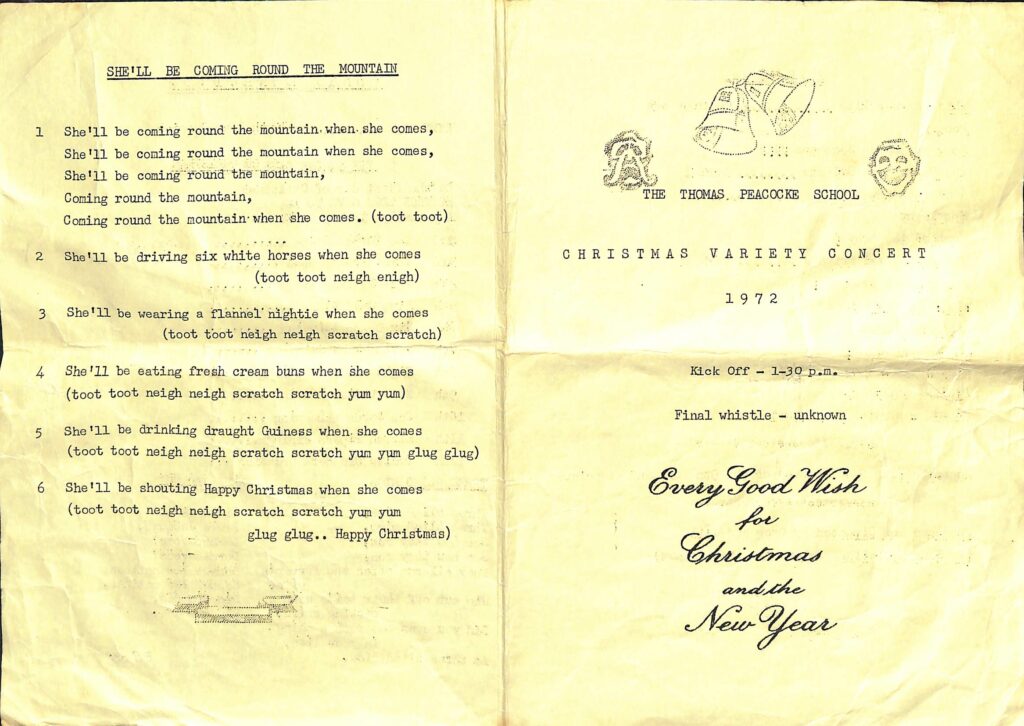 SHE'LL BE COMING ROUND THE MOUNTAIN
1 She'll be coming round the mountain when she comes,
She'll be coming round the mountain when she comes,
She'll be coming round the mountain,
Coming round the mountain,
Coming round the mountain when she comes. (toot toot)
2 She'll be driving six white horses when she comes
(toot toot neigh enigh)
3 She'll be wearing a flannel nightie when she comes
(toot toot neigh neigh scratch scratch)
4 She'll be eating fresh cream buns when she comes
(toot toot neigh neigh scratch scratch yum yum)
5 She'll be drinking draught Guiness when she comes
(toot toot neigh neigh scratch scratch yum yum glug glug)
6 She'll be shouting Happy Christmas when she comes
(toot toot neigh neigh scratch scratch yum yum
glug glug.. Happy Christmas)
THE THOMAS PEACOCKE SCHOOL
CHRISTMAS VARIETY CONCERT
1972
Kick Off - 1-30 p.m.
Final whistle - unknown
Every Good Wish
for
Christmas
and the
New Year